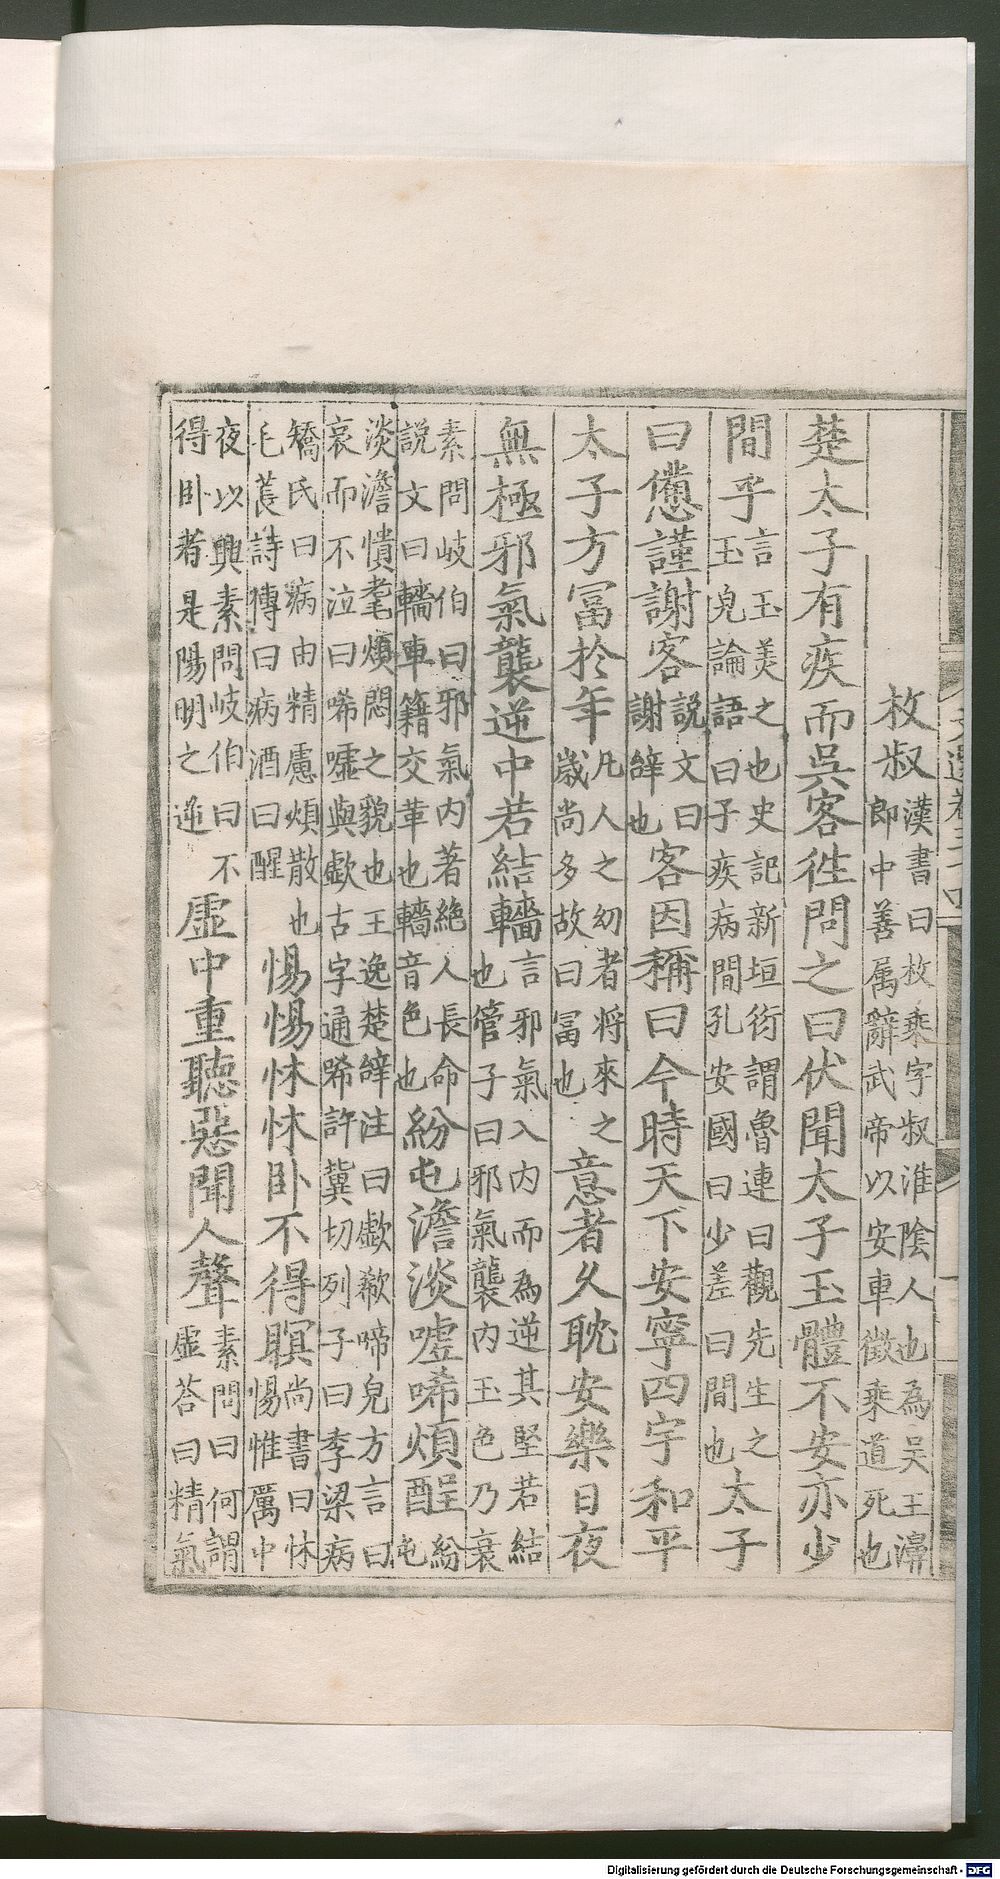 枚叔漢書曰枚乘字叔淮陰人也為吴王濞郎中善属辭武帝以安車徵乘道死也
楚太子有疾而吳客徃問之曰伏聞太子玉體不安亦少
間乎言玉美之也史記新垣衍謂魯連曰觀先生之玉皃論語曰子疾病間孔安國曰少差曰間也太子
曰憊謹謝客說文曰謝辭也客因稱曰今時天下安寧四宇和平
太子方冨於年凡人之幼者将來之歲尚多故曰冨也意者久耽安樂日夜
無極邪氣襲逆中若結轖言邪氣入内而為逆其堅若結也管子曰邪氣襲内玉色乃衰
素問岐伯曰邪氣内著絶人長命說文曰轖車籍交革也轖音色也紛屯澹淡嘘唏煩酲紛屯
淡澹憒耄煩悶之貌也王逸楚辭注曰歔欷啼皃方言曰哀而不泣曰唏嘘與歔古字通唏許冀切列子曰季梁病
矯氏曰病由精慮煩散也毛萇詩傳曰病酒曰酲惕惕怵怵卧不得瞑尚書曰怵惕惟厲中
夜以興素問岐伯曰不得卧者是陽明之逆虛中重聽惡聞人聲素問曰何謂虚荅曰精氣
Digitalisierung gefördert durch die Deutsche Forschungsgemeinschaft - DFG